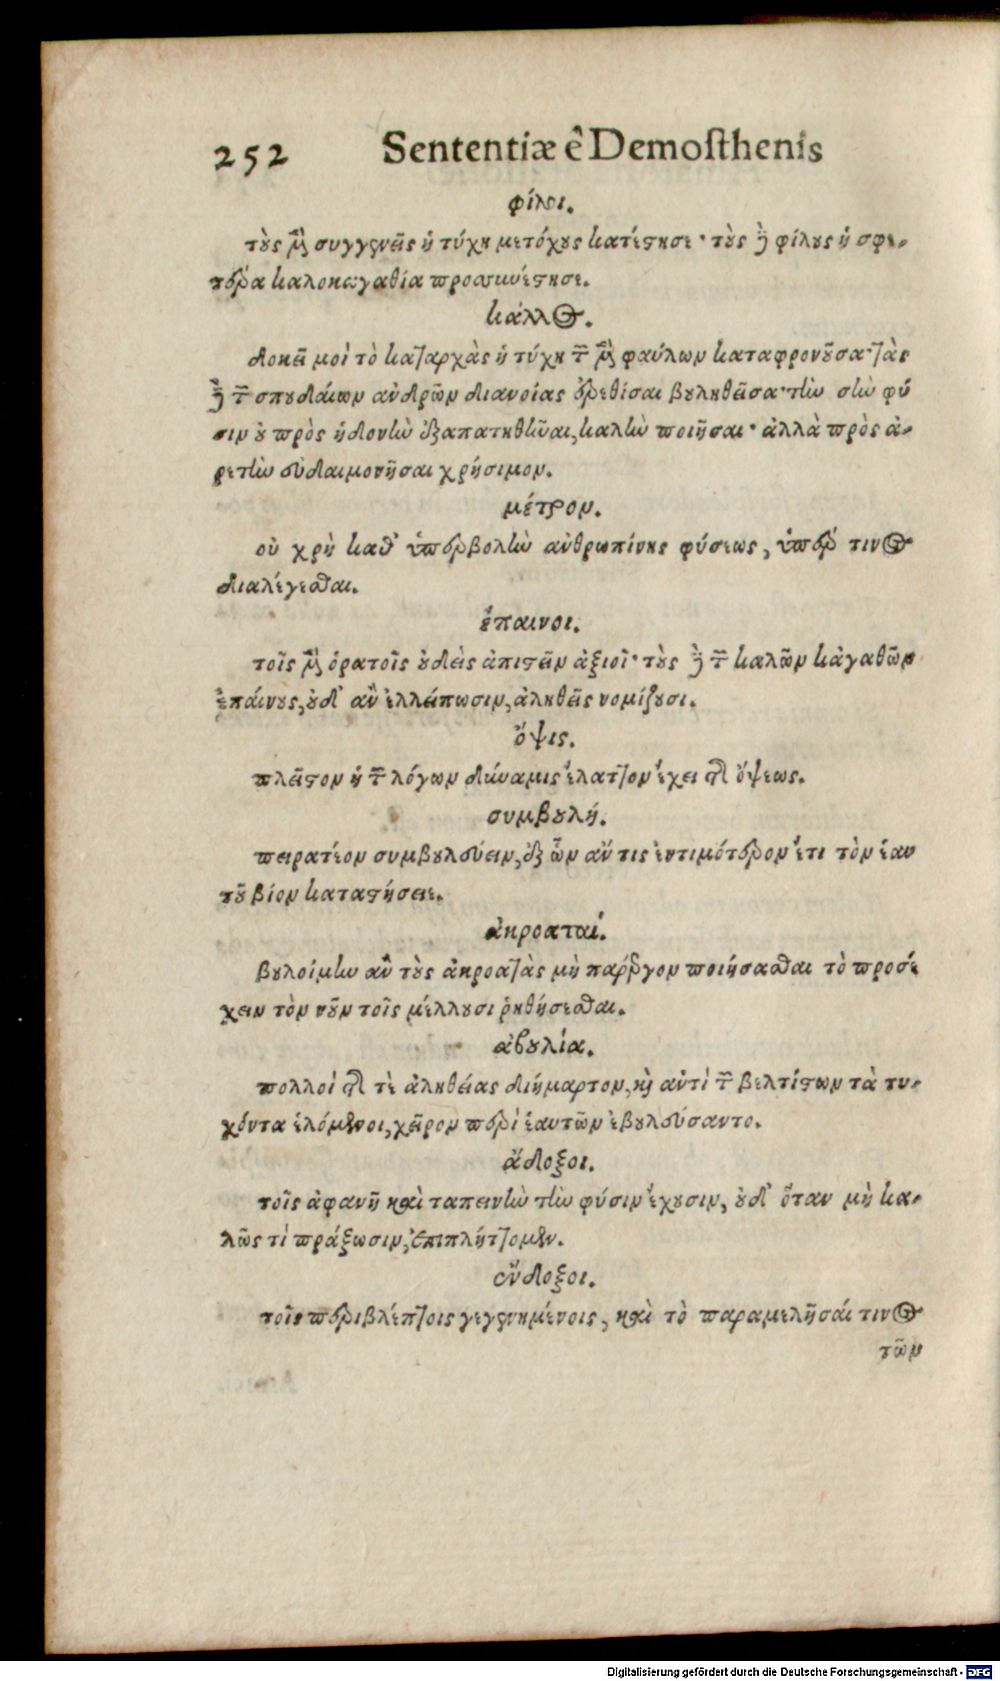 252 Sententiæ è Demosthenis
φίλοι.
τοὺς μὲν συγγενεῖς ἡ τύχη μετόχους κατέστησε· τοὺς δὲ φίλους ἡ σφε-
τέρα καλοκαγαθία προσκυνέστησε.
κάλλος.
δοκεῖ μοὶ τὸ καταρχὰς ἡ τύχη τῶν μὲν φαύλων καταφρονοῦσα· τὰς
δὲ τῶν σπουδαίων ἀνδρῶν διανοίας ἐρεθίσαι βουληθεῖσα· τὴν σὴν φύ
σιν οὐ πρὸς ἡδονὴν ἐξαπατηθῆναι, καλὴν ποιῆσαι· ἀλλὰ πρὸς ἀ-
ρετὴν εὐδαιμονῆσαι χρήσιμον.
μέτρον.
οὐ χρὴ καθ᾽ ὑπερβολὴν ἀνθρωπίνης φύσεως, ὑπέρ τινος
διαλέγεσθαι.
ἔπαινοι.
τοῖς μὲν ὁρατοῖς οὐδεὶς ἀπιστεῖν ἀξιοῖ· τοὺς δὲ τῶν καλῶν κἀγαθῶν
ἐπαίνους, οὐδ᾽ ἂν ἐλλείπωσιν, ἀληθεῖς νομίζουσι.
ὄψις.
πλεῖστον ἡ τῶν λόγων δύναμις ἔλαττον ἔχει τῆς ὄψεως.
συμβουλή.
πειρατέον συμβουλεύειν, ἐξ ὧν ἄν τις ἐντιμότερον ἔτι τὸν ἑαυ
τοῦ βίον καταστήσειε.
ἀκροαταί.
βουλοίμην ἂν τοὺς ἀκροατὰς μὴ πάρεργον ποιήσασθαι τὸ προσέ
χειν τὸν νοῦν τοῖς μέλλουσι ῥηθήσεσθαι.
ἀβουλία.
πολλοὶ τῆς τε ἀληθείας διήμαρτον, καὶ ἀντὶ τῶν βελτίστων τὰ τυ-
χόντα ἑλόμενοι, χεῖρον περὶ ἑαυτῶν ἐβουλεύσαντο.
ἄδοξοι.
τοῖς ἀφανῆ καὶ ταπεινὴν τὴν φύσιν ἔχουσιν, οὐδ᾽ ὅταν μὴ κα-
λῶς τὶ πράξωσιν, ἐπιπλήττομεν.
εὔδοξοι.
τοῖς περιβλέπτοις γεγενημένοις, καὶ τὸ παραμελῆσαί τινος
τῶν
Digitalisierung gefördert durch die Deutsche Forschungsgemeinschaft - DFG